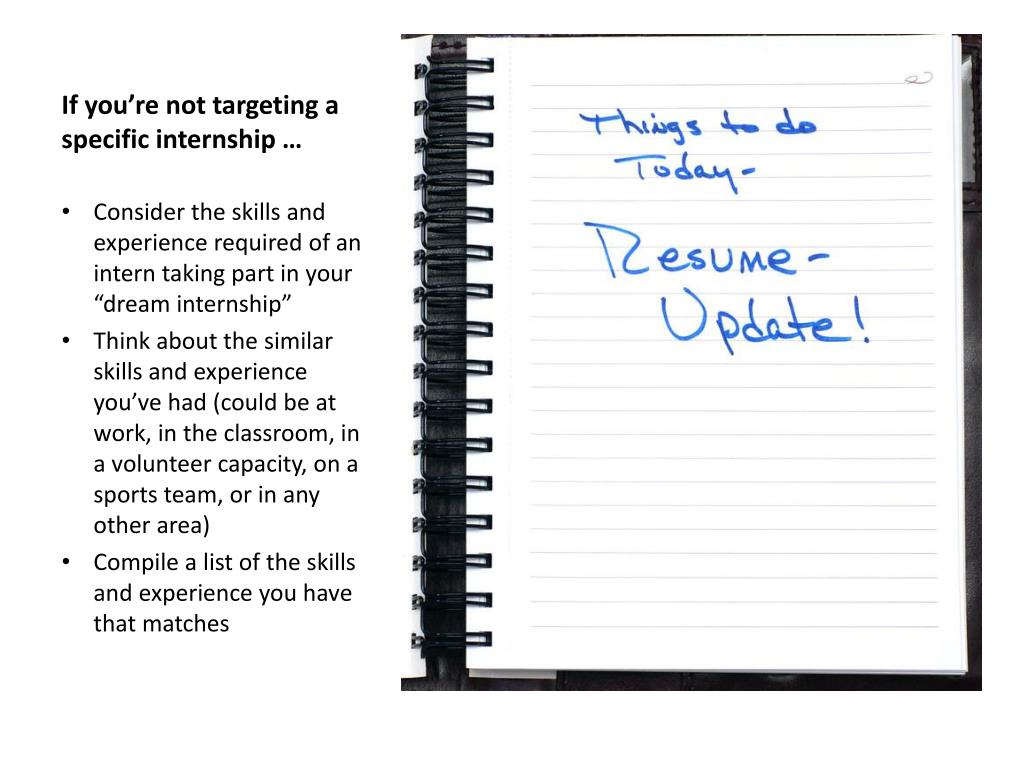 If you’re not targeting a
specific internship …
• Consider the skills and
experience required of an
intern taking part in your
“dream internship”
• Think about the similar
skills and experience
you’ve had (could be at
work, in the classroom, in
a volunteer capacity, on a
sports team, or in any
other area)
• Compile a list of the skills
and experience you have
that matches
Things to do
Today-
Resume-
Update!